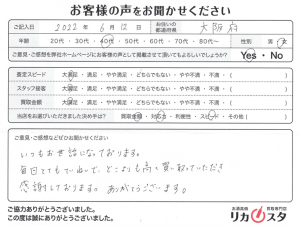 お客様の声をお聞かせください
ご記入日 2022年 6月 12日 お住いの都道府県 大阪府
年齢 20代・30代・40代・50代・60代・70代・80代~ 性別 男・女
ご意見・ご感想を弊社ホームページにお客様の声として掲載させて頂いてもよろしいでしょうか? Yes・No
査定スピード 大満足・満足・やや満足・どちらでもない・やや不満・不満・( )
スタッフ接客 大満足・満足・やや満足・どちらでもない・やや不満・不満・( )
買取金額 大満足・満足・やや満足・どちらでもない・やや不満・不満・( )
当店をお選びいただきました決め手は? 買取金額・対応力・利便性・スピード・その他( )
ご意見・ご感想などぜひお聞かせください。
いつもお世話になっております。
毎日とてもていねいで、どこよりも高く買い取っていただき
感謝しております。ありがとうございます。
ご協力ありがとうございました。
この度は誠にありがとうございました。
お酒高価買取専門店
リカスタ